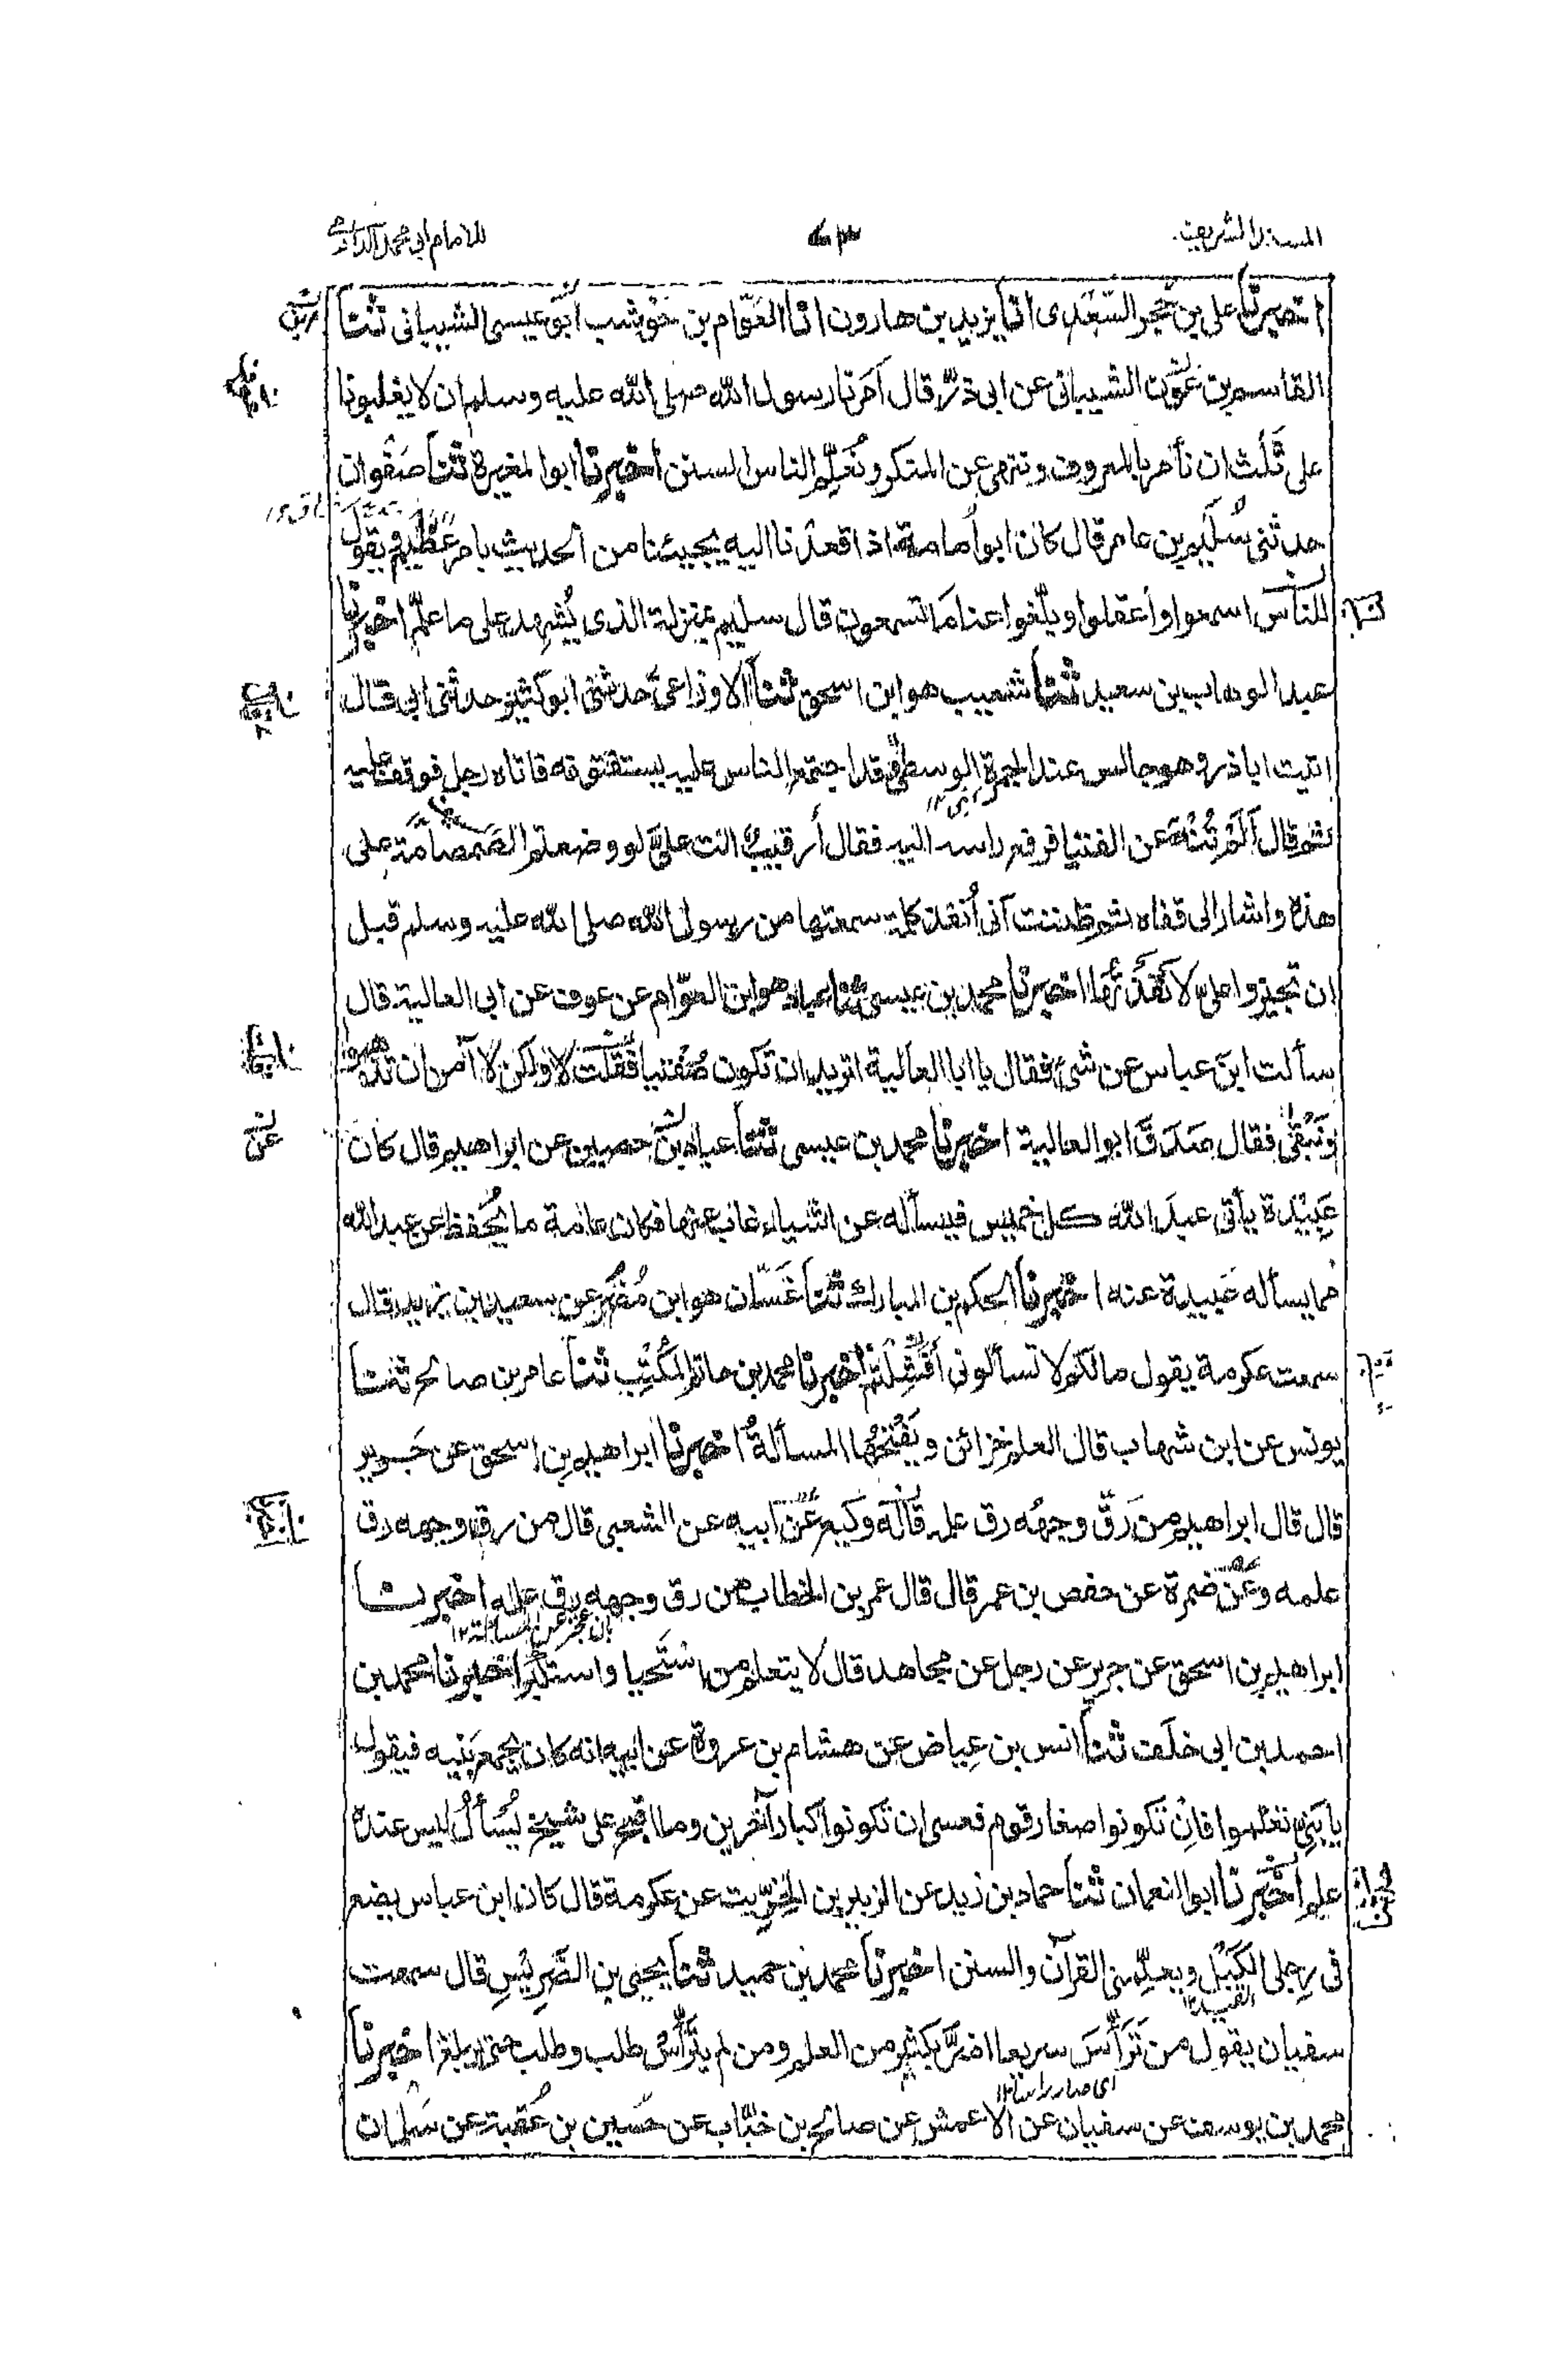 المسند الشريف
للامام ابى محمد الدارمى
اخبرنا على بن حجر السعدى انا يزيد بن هارون انا العوّام بن حوشب ابو عيسى الشيبانى ثنا
القاسم بن عوف الشيبانى عن ابى ذرّ قال اَمَرنا رسول الله صلى الله عليه وسلم ان لا يغلبونا
على ثلٰث ان نأمر بالمعروف وننهى عن المنكر ونُعَلِّم الناس السنن اخبرنا ابو المغيرة ثنا صَفْوان
حدثنى سُلَيم بن عامر قال كان ابو اُمامة اذا قعدنا اليه يجيئنا من الحديث بامر عَظيم ويقول
للناس اسمعوا واعقلوا وبلّغوا عنا ما تسمعون قال سليم بمنزلة الذى يُشهِد على ما علم اخبرنا
عبد الوهاب بن سعيد ثنا شعيب هو ابن اسحٰق ثنا الاوزاعى حدثنى ابو كثير حدثنى ابى قال
اتيت ابا ذر وهو جالس عند الجمرة الوسطى وقد اجتمع الناس عليه يستفتونه فاتاه رجل فوقف عليه
ثم قال اَلَم تُنْهَ عن الفتيا فرفع راسه اليه فقال أرقيبٌ انت علىّ لو وضعتم الصَّمصامة على
هذه واشار الى قفاه ثم ظننت انى اُنفذ كلمة سمعتها من رسول الله صلى الله عليه وسلم قبل
ان تجيزوا علىّ لاَنفَذْتُها اخبرنا محمد بن عيسى ثنا عباد هو ابن العوّام عن عوف عن ابى العالية قال
سألت ابن عباس عن شىء فقال يا ابا العالية اتريد ان تكون مُفْتيا فقلت لا ولكن لا آمن ان تذهبوا
ونَبْقى فقال صَدَقَ ابو العالية اخبرنا محمد بن عيسى ثنا عباد بن حصين عن ابراهيم قال كان
عَبِيْدة يأتى عبدَ الله كل خميس فيسأله عن اشياء غاب عنها فكان عامة ما يُحفظ عن عبد الله
مما يسأله عَبيدة عنه اخبرنا الحكم بن المبارك ثنا غَسّان هو ابن مُضَر عن سعيد بن يزيد قال
سمعت عكرمة يقول مالكم لا تسألونى اَفَشِلتم اخبرنا محمد بن حاتم المُكْتِب ثنا عامر بن صالح ثنا
يونس عن ابن شهاب قال العلم خزائن ويَفْتَحُها المسألةُ اخبرنا ابراهيم بن اسحق عن جَرير
قال قال ابراهيم من رَقَّ وجهُه رق علمه قاله وكيع عَن ابيه عن الشعبى قال من رق وجهه رق
علمه وعن ضمرة عن حفص بن عمر قال قال عمر بن الخطاب من رق وجهه رق علمه اخبرنا
بان عجز عن المسالة ١٢
ابراهيم بن اسحق عن جرير عن رجل عن مجاهد قال لا يتعلم من اسْتَحيا واستكبَر اخبرنا محمد بن
احمد بن ابى خلَف ثنا انس بن عِياض عن هشام بن عروة عن ابيه انه كان يجمع بَنيه فيقول
يا بَنِىّ تعلّموا فاِنْ تكونوا صغار قوم فعسى ان تكونوا كبار آخرين وما اقبح على شيخ يُسْأل ليس عنده
علم اخبرنا ابو النعمان ثنا حماد بن زيد عن الزبير بن الخِرّيت عن عكرمة قال كان ابن عباس يضع
فى رِجلى الكَبْل ويعلّمنى القرآن والسنن اخبرنا محمد بن حميد ثنا يحيى بن الضَّرِيْسِ قال سمعت
القيد ١٢
سفيان يقول من تَرَأَّسَ سريعا اضَرَّ بكثير من العلم ومن لم يَتَرَأَّسْ طلب وطلب حتى يبلغ اخبرنا
اى صار راسا ١٢
محمد بن يوسف عن سفيان عن الاعمش عن صالح بن خبّاب عن حُصَين بن عُقبة عن سَلمان